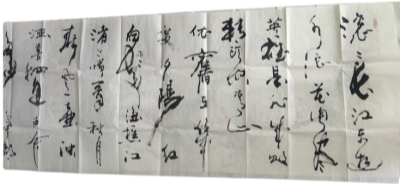 滚滚长江东逝
水浪花淘尽
英雄是非成败
转头空青山
依旧在几
度夕阳红
白发渔樵江
渚上惯看秋月
春风一壶浊
酒喜相逢古今